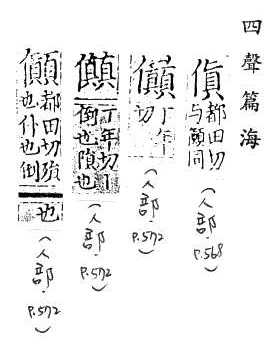 四聲篇海
傎 都田切 与顛同 (人部. p.568)
丁年切 (人部. p.572)
丁年切 倒也隕也 (人部. p.572)
都田切殞也仆也倒也 (人部. p.572)